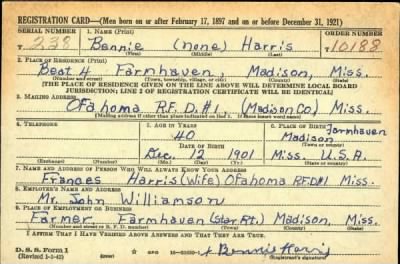 REGISTRATION CARD—(Men born on or after February 17, 1897 and on or before December 31, 1921)
SERIAL NUMBER 1. NAME (Print) ORDER NUMBER
T 238 Bennie (none) Harris 10188
(First) (Middle) (Last)
2. PLACE OF RESIDENCE (Print)
Beat 4 Farmhaven, Madison, Miss.
(Number and street) (Town, township, village, or city) (County) (State)
[THE PLACE OF RESIDENCE GIVEN ON THE LINE ABOVE WILL DETERMINE LOCAL BOARD
JURISDICTION; LINE 2 OF REGISTRATION CERTIFICATE WILL BE IDENTICAL]
3. MAILING ADDRESS
Ofahoma R.F.D.#1, (Madison Co.) Miss.
[Mailing address if other than place indicated on line 2. If same insert word same]
4. TELEPHONE 5. AGE IN YEARS 6. PLACE OF BIRTH
40 Farmhaven
DATE OF BIRTH Madison
(Town or county)
Dec. 12 1901 Miss. U.S.A.
(Exchange) (Number) (Mo.) (Day) (Yr.) (State or country)
7. NAME AND ADDRESS OF PERSON WHO WILL ALWAYS KNOW YOUR ADDRESS
Frances Harris (Wife) Ofahoma RFD#1 Miss.
8. EMPLOYER'S NAME AND ADDRESS
Mr. John Williamson
9. PLACE OF EMPLOYMENT OR BUSINESS
Farmer, Farmhaven (Star Rt.) Madison, Miss.
(Number and street or R. F. D. number) (Town) (County) (State)
I AFFIRM THAT I HAVE VERIFIED ABOVE ANSWERS AND THAT THEY ARE TRUE.
D. S. S. Form 1
(Revised 1-1-42) (over) Bennie Harris